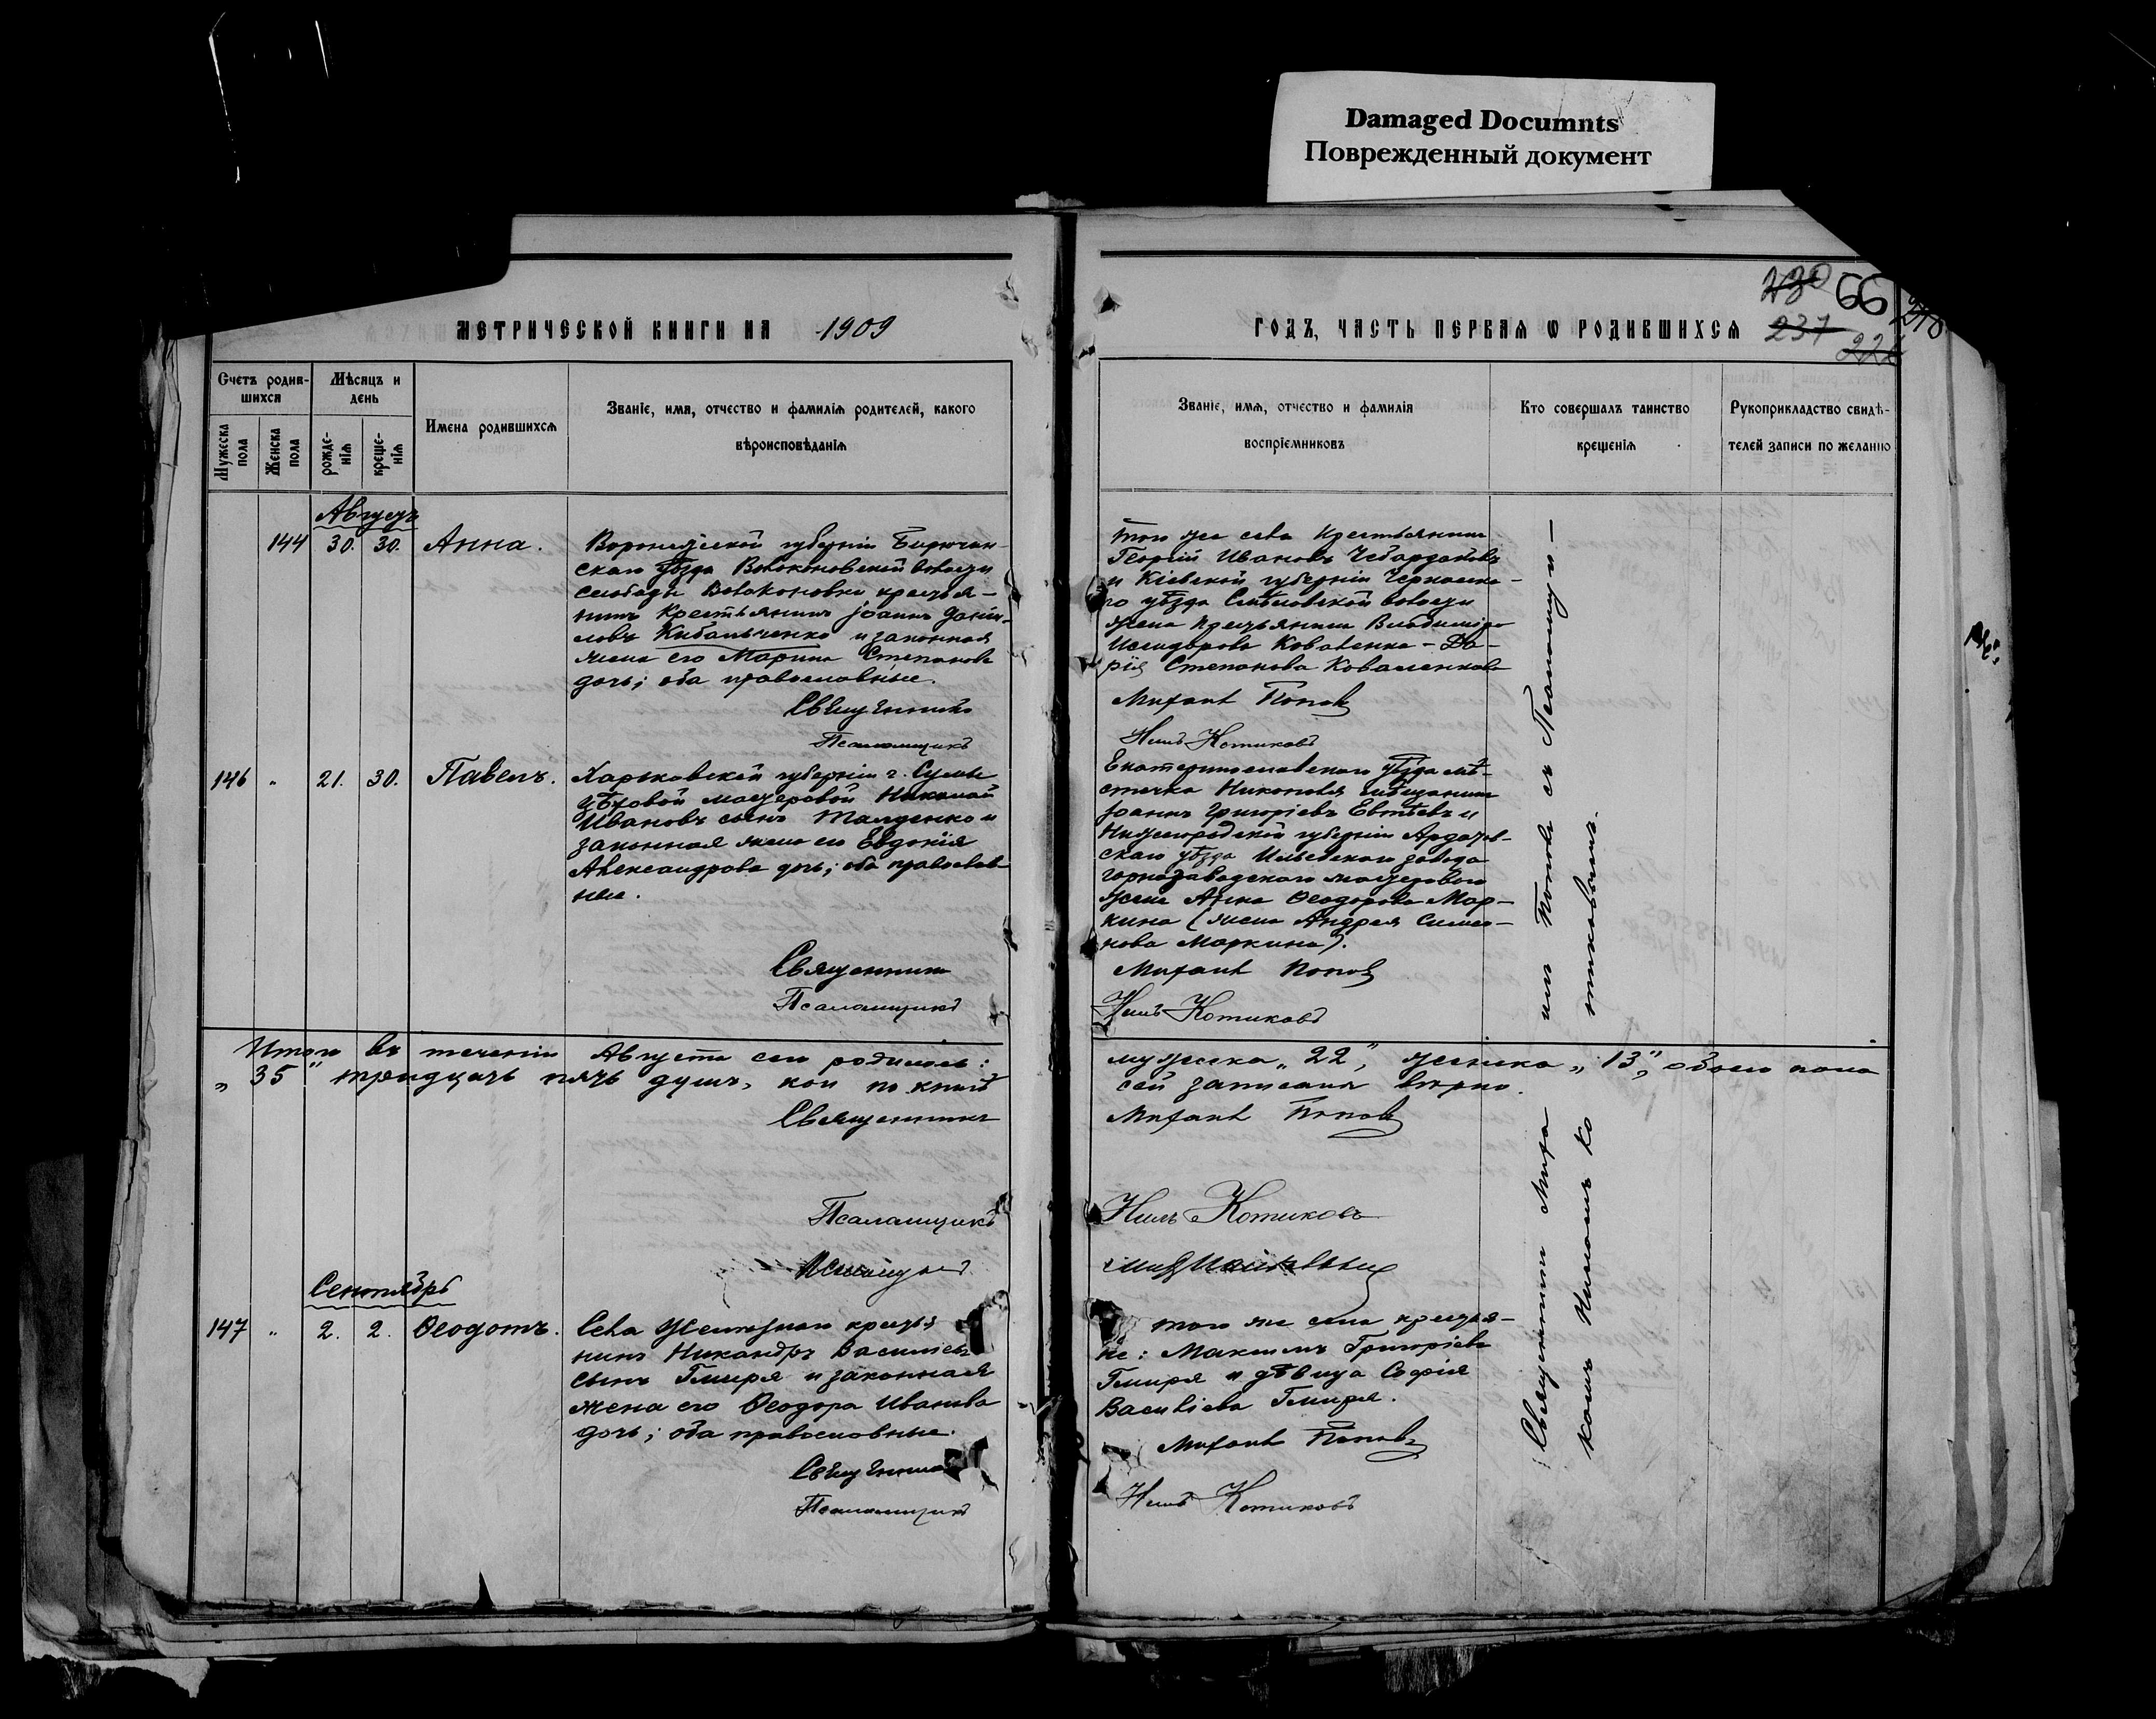 Damaged Documnts
Поврежденный документ
МЕТРИЧЕСКОЙ КНИГИ НА 1909
ГОДЪ, ЧАСТЬ ПЕРВАЯ Ѡ РОДИВШИХСЯ
230
66
237
Счетъ родив-
шихся
Мужеска пола
Женска пола
Мѣсяцъ и
день
рожде-
нія
креще-
нія
Имена родившихся
Званіе, имя, отчество и фамилія родителей, какого
вѣроисповѣданія
Званіе, имя, отчество и фамилія
воспріемниковъ
Кто совершалъ таинство
крещенія
Рукоприкладство свидѣ-
телей записи по желанію
Августъ
144 30. 30. Анна.
Воронежской губерніи Бирючен-
скаго уѣзда Волоконовской волости
слободы Волоконовки крестья-
нинъ Крестьянинъ Іоаннъ Данiи-
ловъ Кибальченко и законная
жена его Марина Степанова
дочь; оба православные.
Священникъ
Псаломщикъ
того же села Крестьянинъ
Георгій Ивановъ
и Кіевской губерніи Черкасска-
го уѣзда Смѣловской волости
жена крестьянина Владиміра
Исидорова Коваленко - Да-
рія Степанова Коваленкова
Михаилъ Поповъ
Нилъ Котиковъ
146 " 21. 30. Павелъ.
Харьковской губерніи г. Сумы
цѣховой мастеровой Николай
Ивановъ сынъ
законная жена его Евдокія
Александрова дочь; оба православ-
ные.
Священникъ
Псаломщикъ
Екатеринославскаго уѣзда мѣ-
стечка Никополя мѣщанинъ
Іоаннъ Григоріевъ Евтѣевъ и
Нижегородской губерніи Ардатов-
скаго уѣзда Илевскаго завода
горнозаводскаго мастероваго
жена Анна Ѳеодорова Мар-
кина (жена Андрея Симео-
нова Маркина).
Михаилъ Поповъ
Нилъ Котиковъ
Итого въ теченіи Августа сего родилось:
мужеска „22", женска „13", обоего пола
„35" тридцать пять душъ, кои по книгѣ
сей записаны вѣрно.
Священникъ
Михаилъ Поповъ
Псаломщикъ
Нилъ Котиковъ
Сентябрь
147 " 2. 2. Ѳеодотъ.
Села крестья
нинъ Никандръ Василіевъ
сынъ Гмиря и законная
жена его Ѳеодора Иванова
дочь; оба православные.
Священникъ
Псаломщикъ
того же села крестья-
не: Максимъ Григоріевъ
Гмиря и дѣвица Софія
Василіева Гмиря.
Михаилъ Поповъ
Нилъ Котиковъ
Священникъ Миха
илъ Поповъ съ Псаломщи-
комъ Ниломъ Ко
тиковымъ.